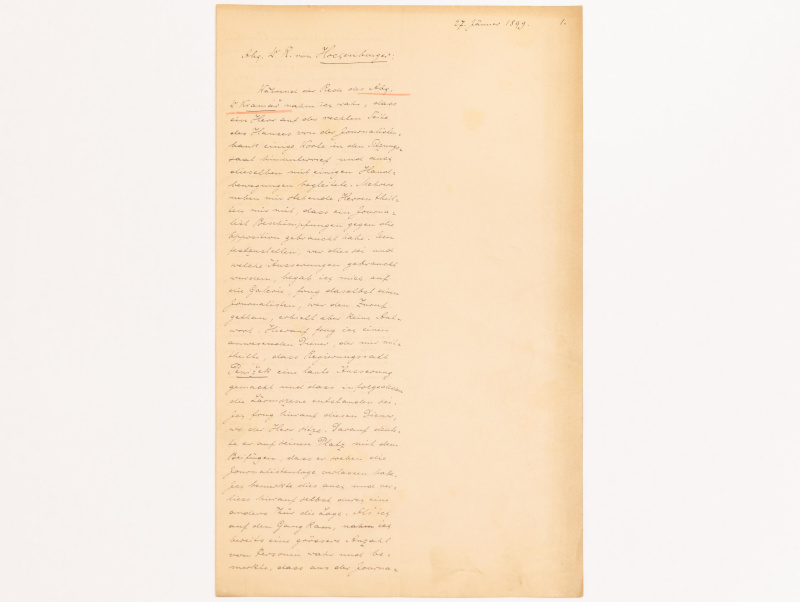 27. Jänner 1899. 1.
Abg. Dr R. von Hoezenburger:
Während der Rede des Abg.
Dr Kramář nahm ich wahr, dass
ein Herr auf der rechten Seite
des Hauses von der Journalisten-
bank einige Worte in den Sitzungs-
saal hinunterrief und auch
dieselben mit einigen Hand-
bewegungen begleitete. Mehrere
neben mir stehende Herren theil-
ten mir mit, dass ein Journa-
list Beschimpfungen gegen die
Opposition gebraucht habe. Um
festzustellen, wer dies sei und
welche Äusserungen gebraucht
wurden, begab ich mich auf
die Galerie, frug daselbst einen
Journalisten, wer den Zuruf
gethan, erhielt aber keine Ant-
wort. Hierauf frug ich einen
anwesenden Diener, der mir mit-
theilte, dass Regierungsrath
eine laute Äusserung
gemacht und dass infolgedessen
die Lärmszene entstanden sei.
Ich frug hierauf diesen Diener,
wo der Herr sitze. Darauf deute-
te er auf seinen Platz mit dem
Beifügen, dass er soeben die
Journalistenloge verlassen habe.
Ich bemerkte dies auch und ver-
liess hierauf selbst durch eine
andere Tür die Loge. Als ich
auf den Gang kam, nahm ich
bereits eine grössere Anzahl
von Personen wahr und be-
merkte, dass aus der Journa-